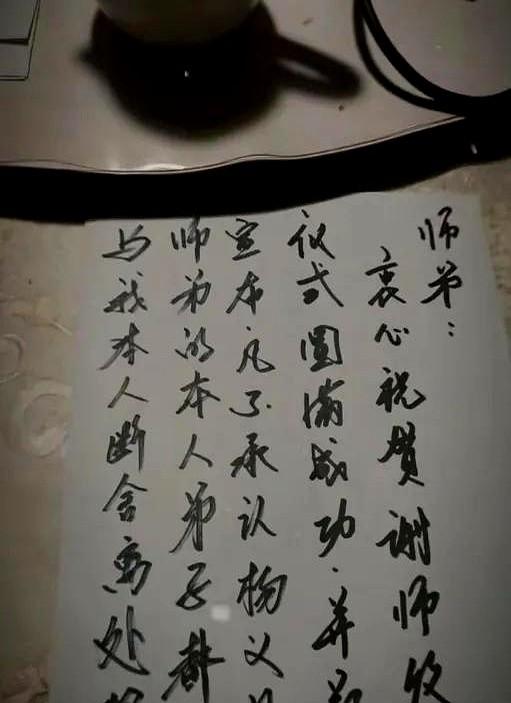 师弟：
衷心祝贺谢师收
仪式圆满成功.并
宣布凡不承认杨义
师弟的本人弟子都
与我本人断舍离处